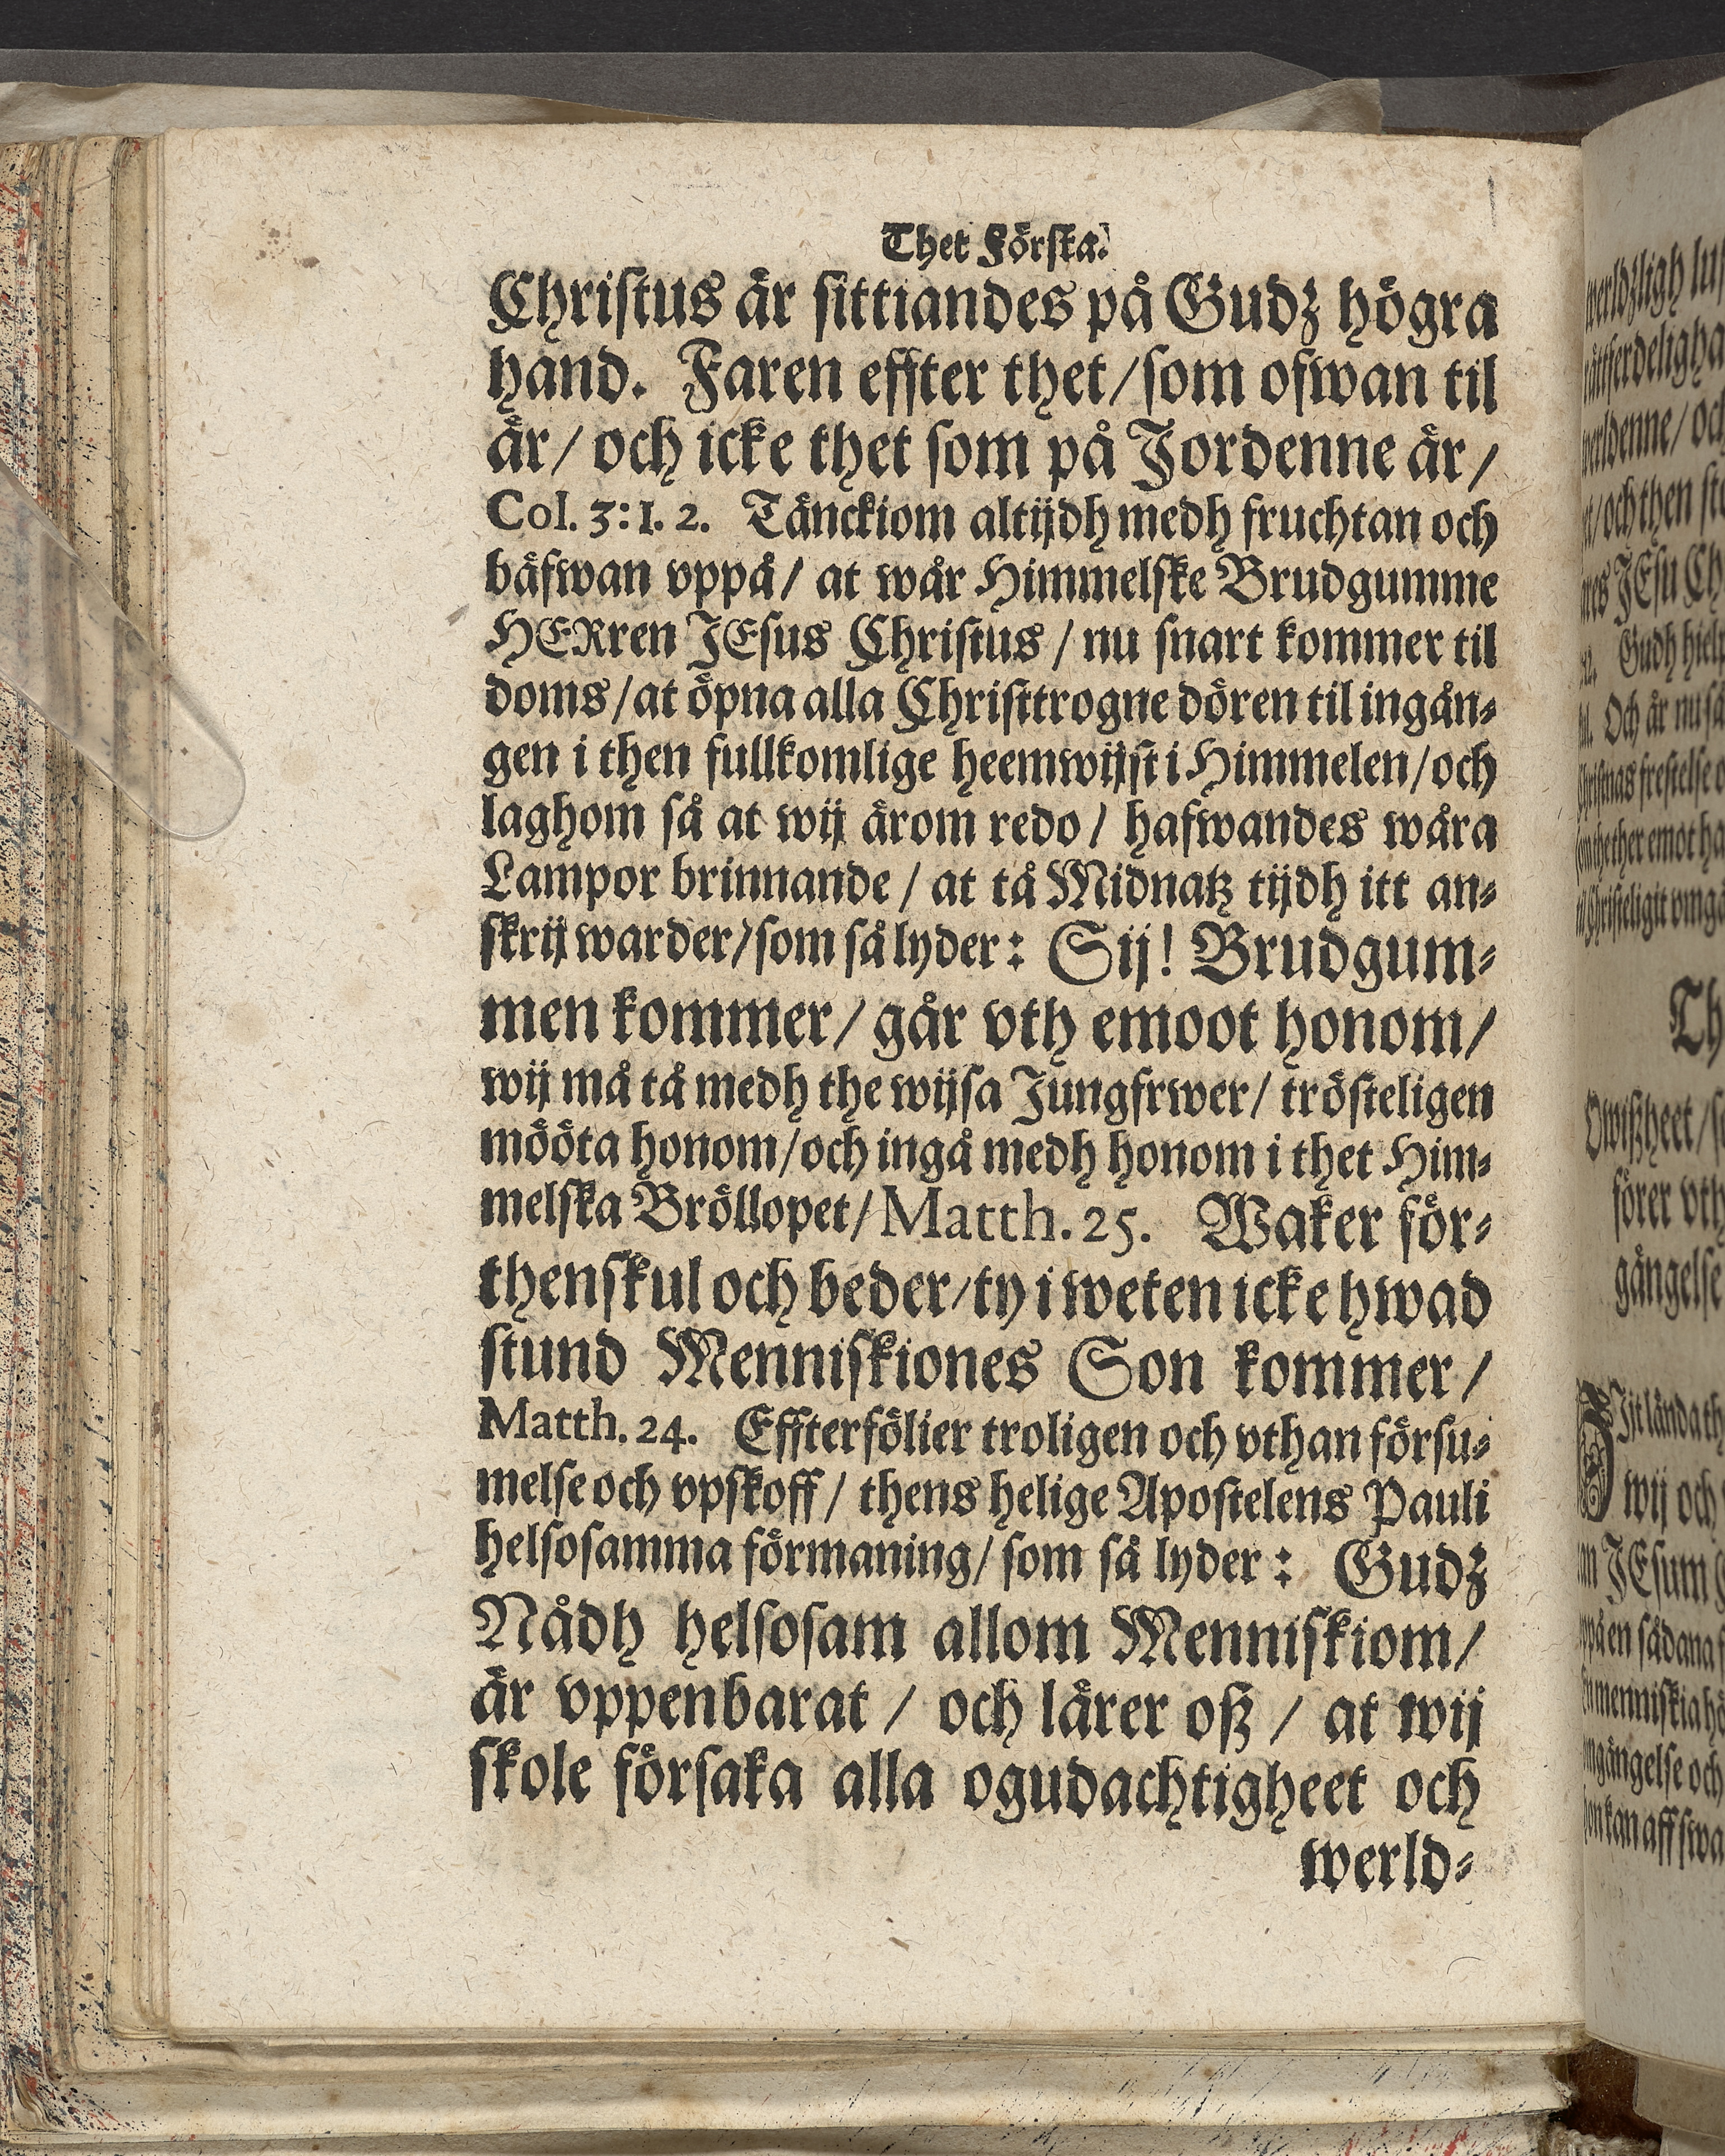 Thet Förſta.
Chriſtus är ſittiandes på Gudz högra
hand. Faren effter thet/ſom ofwan til
är/ och icke thet ſom på Jordenne är/
Col. 3:1. 2. Tänckiom altijdh medh fruchtan och
bäfwan vppå/ at wår Himmelſke Brudgumme
HERren JEſus Chriſtus / nu ſnart kommer til
doms/at öpna alla Chriſttrogne dören til ingån⸗
gen i then fullkomlige heemwijſt i Himmelen/och
laghom ſå at wij ärom redo / hafwandes wåra
Lampor brinnande / at tå Midnatz tijdh itt an⸗
ſkrij warder/ſom ſå lyder: Sij! Brudgum⸗
men kommer/ går vth emoot honom/
wij må tå medh the wijſa Jungfrwer/ tröſteligen
mööta honom/och ingå medh honom i thet Him⸗
melſka Bröllopet/Matth. 25. Waker för⸗
thenſkul och beder/ty i weten icke hwad
ſtund Menniſkiones Son kommer /
Matth. 24. Effterfölier troligen och vthan förſu⸗
melſe och vpſkoff/ thens helige Apoſtelens Pauli
helſoſamma förmaning/ ſom ſå lyder: Gudz
Nådh helſoſam allom Menniſkiom/
är vppenbarat / och lärer oß / at wij
ſkole förſaka alla ogudachtigheet och
werld⸗